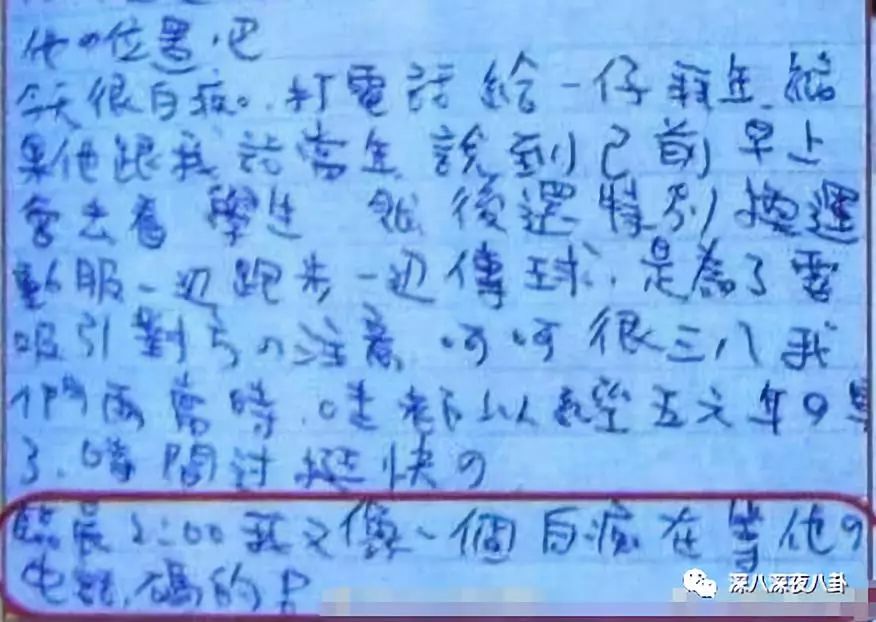 他の位置.吧
今天很白痴.打電話給一仔我生.結
果他跟我說當年說到已前早上
會去看學生 然後還特別換運
動服一边跑步一边傳球.是為了要
吸引對方の注意.呵呵很三八我
們兩當時.哇都以經五六年の事
了.時間过挺快の
臨晨2:00我又像一個白痴在等他の
电話.媽的!
深八深夜八卦